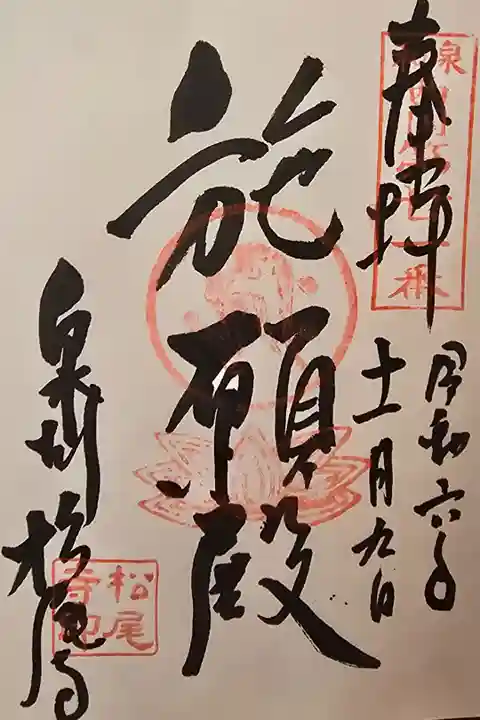 奉拝
令和六年
十一月九日
施願殿
泉州松尾寺
松尾
寺印